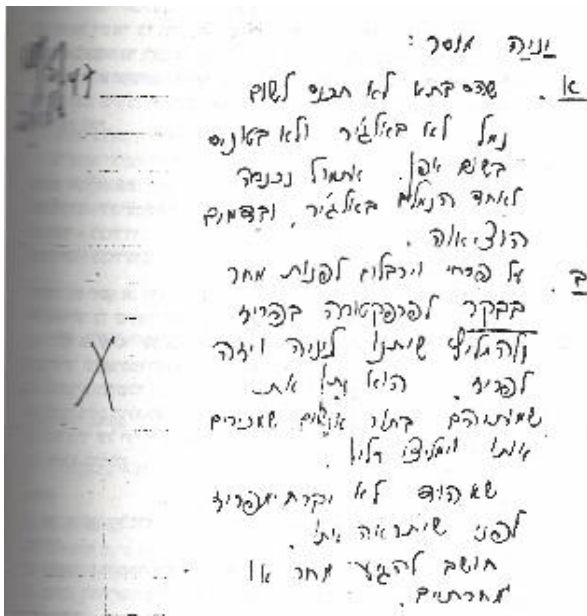 יניה מוסר:
א. שהסבתא לא תכנס לשום
נמל לא באלג'יר ולא בטוניס
בשום אפן. אתמול נכנסה
לאחד הנמלים באלג'יר, ובדמים
הוציאוה.
ב. על פרחי וירבלוג לפנות מחר
בבקר לפרפקטורה בפריז
ולהמליץ שיתנו ליניה ויזה
לפריז. הוא נתן את
שמותיהם בתור אנשים שמכירים
אותו וימליצו עליו.
שאהוד לא יקרח מפריז
לפני שיתראה אתו.
חושב להגיע מחר או
מחרתיים.